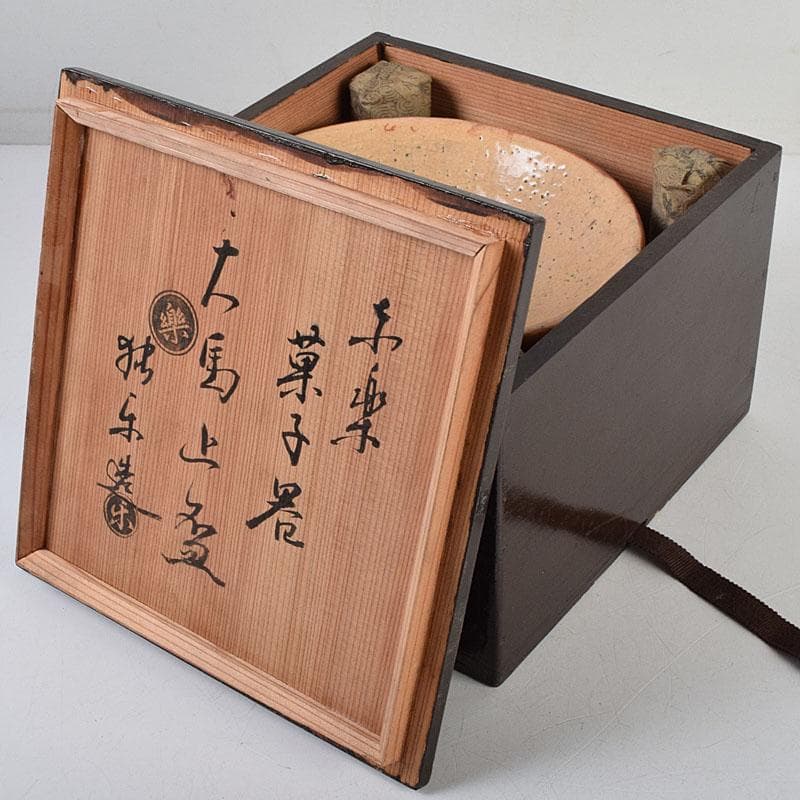 赤楽
菓子器
大馬上盃
樂
独楽造